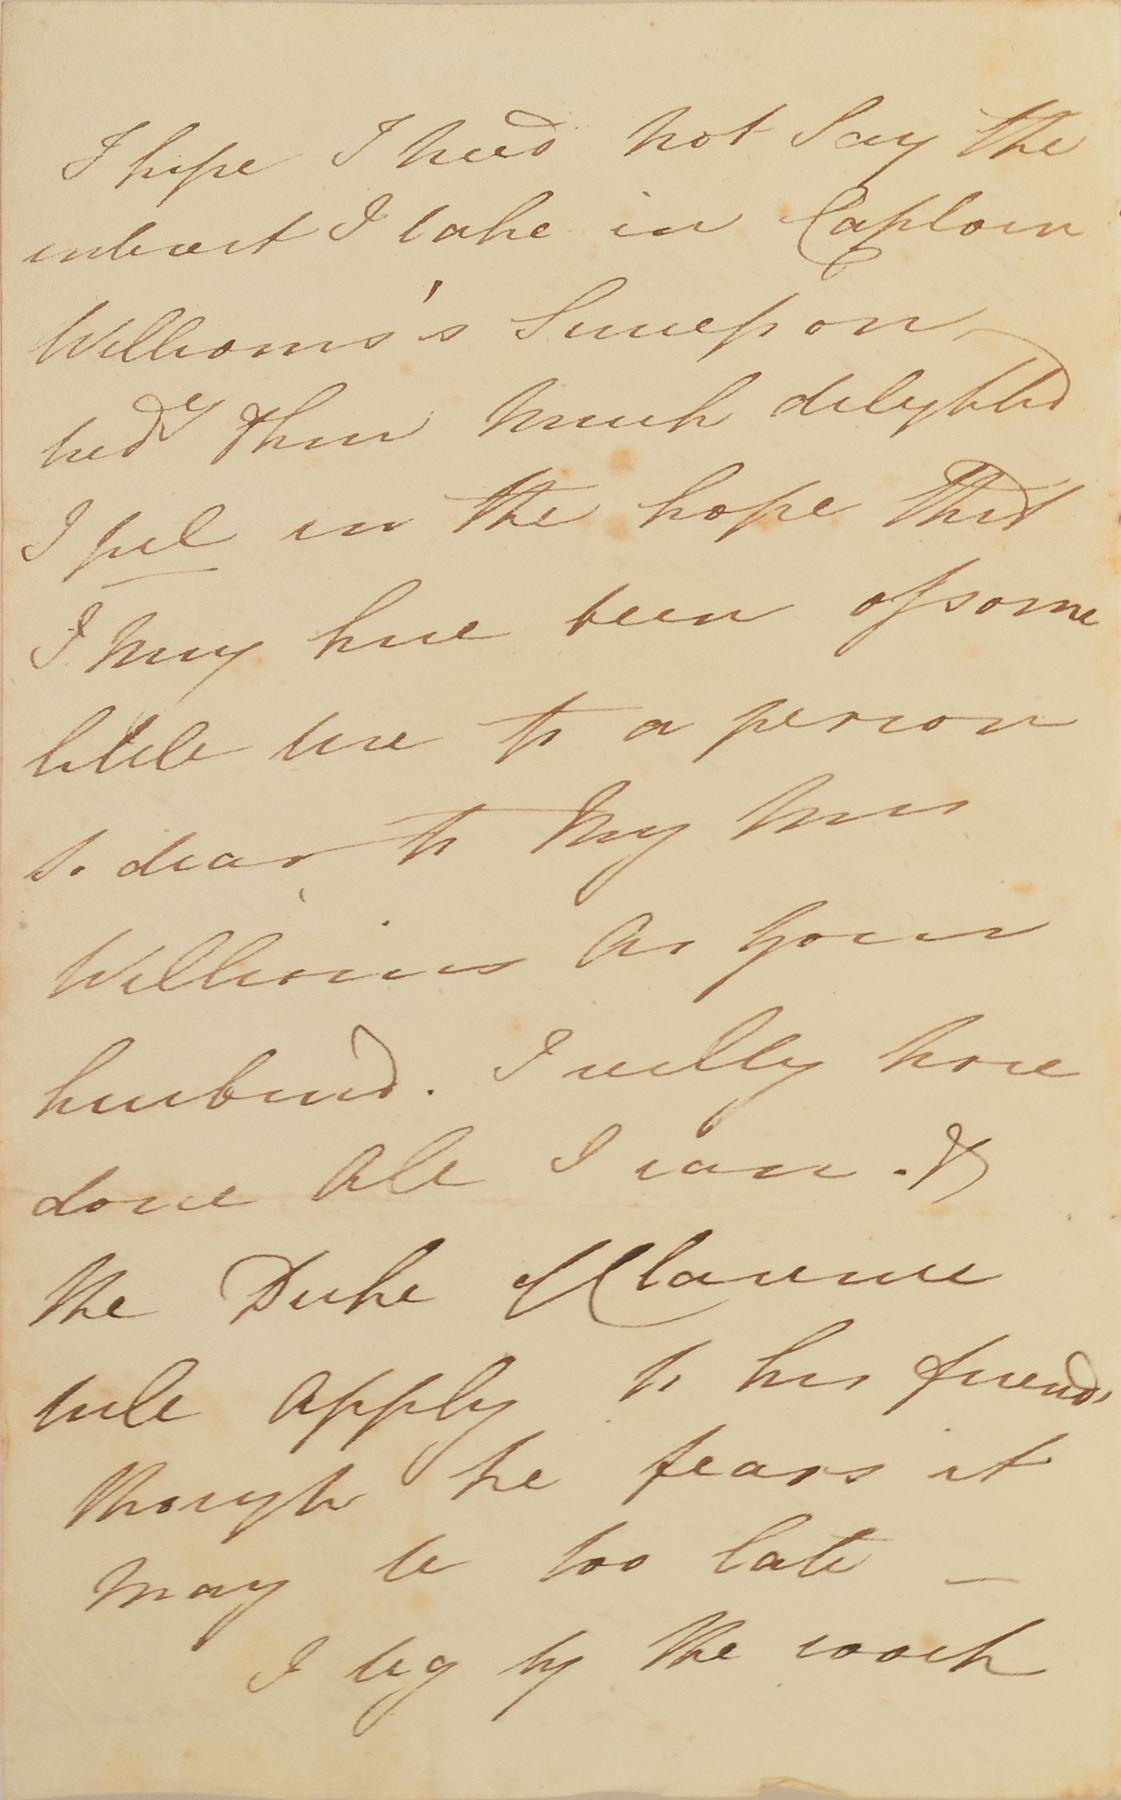 I hope I need not say the
interest I take in Captain
Williams's Succession
how much delighted
I feel in the hope that
I may have been of some
little use to a person
so dear to my Mrs
Williams as your
husband. I really have
done all I can. &
the Duke of Clarence
will apply to his friends
though he fears it
may be too late —
I beg by the coach